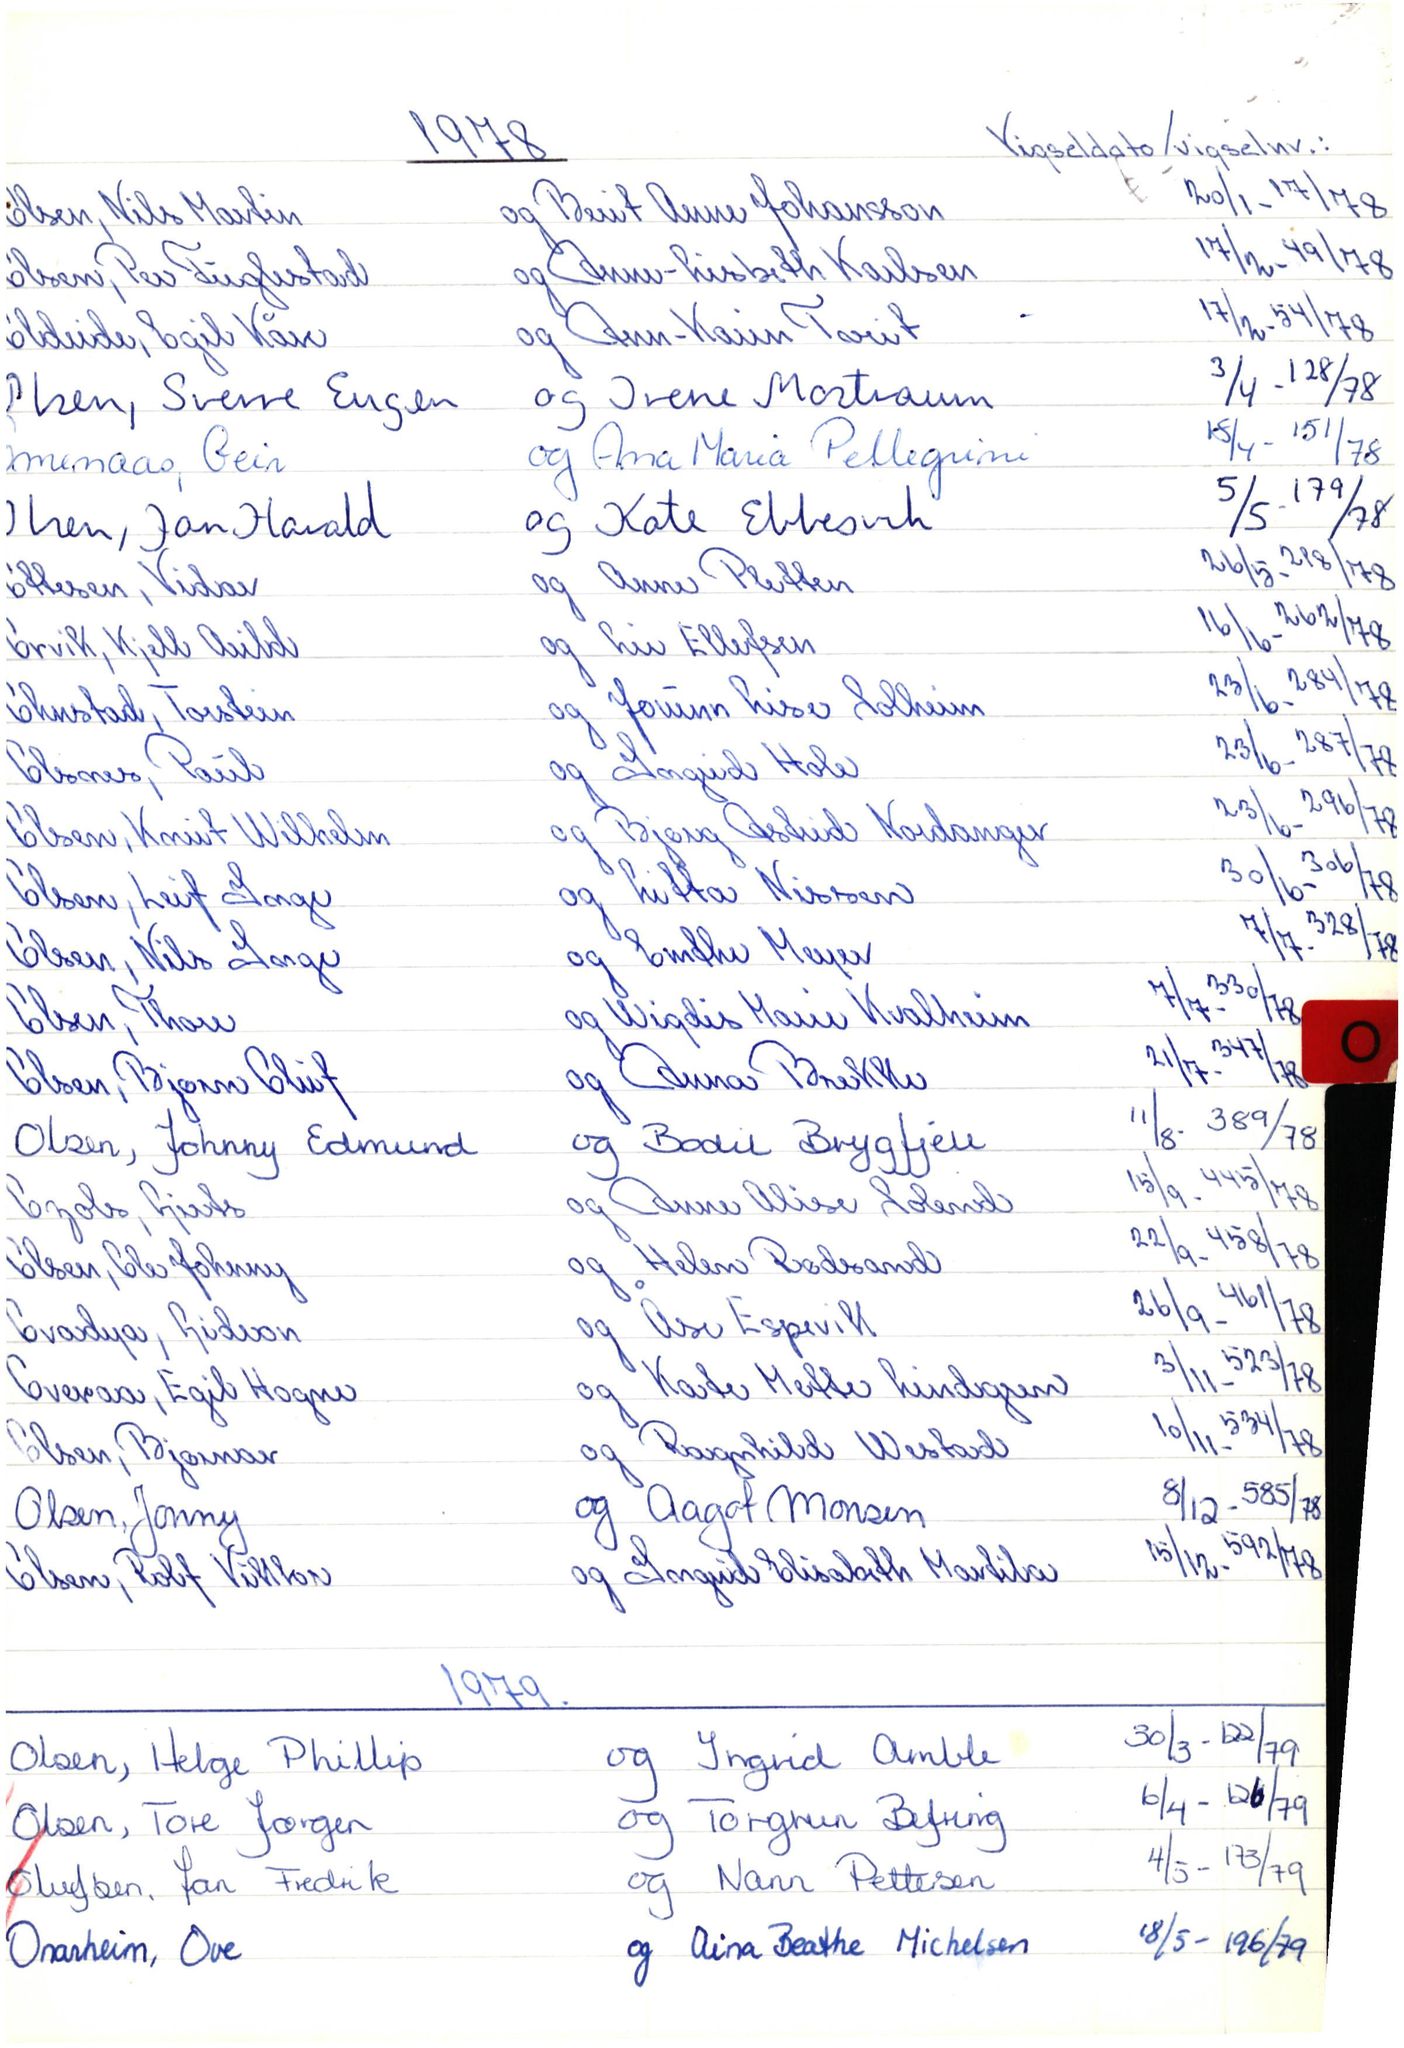 1978 Vigseldato/vigselnr.:
Olsen, Nils Martin og Berit Anne Johansson 20/1-17/78
Olsen, Per Fuglestad og Anne-Lisbeth Karlsen 17/2-49/78
Oldeide, Egil Kåre og Ann-Karin Tveit 17/2-54/78
Olsen, Sverre Eugen og Irene Mostraum 3/4-128/78
Geir og Ana Maria Pellegrini 18/4-151/78
Olsen, Jan Harald og Kate Ebbesvik 5/5-179/78
Ottesen, Vidar og Anne Pletten 26/5-218/78
Orvik, Kjell Arild og Liv Ellefsen 16/6-262/78
Ohnstad, Torstein og Jorunn Lise Solheim 23/6-284/78
Olsnes, Paul og Ingrid Hole 23/6-287/78
Olsen, Knut Wilhelm og Bjørg Astrid Nordanger 23/6-296/78
Olsen, Leif Inge og Litta Nissen 30/6-306/78
Olsen, Nils Inge og Emthe Meyer 7/7-328/78
Olsen, Thore og Wigdis Marie Kvalheim 7/7-330/78
Olsen, Bjørn Oluf og Anna Brekke 21/7-347/78
O
Olsen, Johnny Edmund og Bodil Brygfjell 11/8-389/78
Ozols, og Anne Alise Solend 15/9-445/78
Olsen, Ole Johnny og Helen Rødsand 22/9-458/78
Ovadya, Gideon og Åse Espevik 26/9-461/78
Overaa, Egil Hogne og Kate Mette Lindogen 3/11-523/78
Olsen, Bjørnar og Ragnhild Westad 10/11-534/78
Olsen, Jonny og Aagot Monsen 8/12-585/78
Olsen, Rolf Viktor og Ingrid Elisabeth Martila 15/12-592/78
1979.
Olsen, Helge Phillip og Ingrid Amble 30/3-122/79
Olsen, Tore Jørgen og Torgrun Befring 6/4-126/79
Olufsen, Jan Fredrik og Nann Pettersen 4/5-173/79
Onarheim, Ove og Aina Beathe Michelsen 18/5-196/79